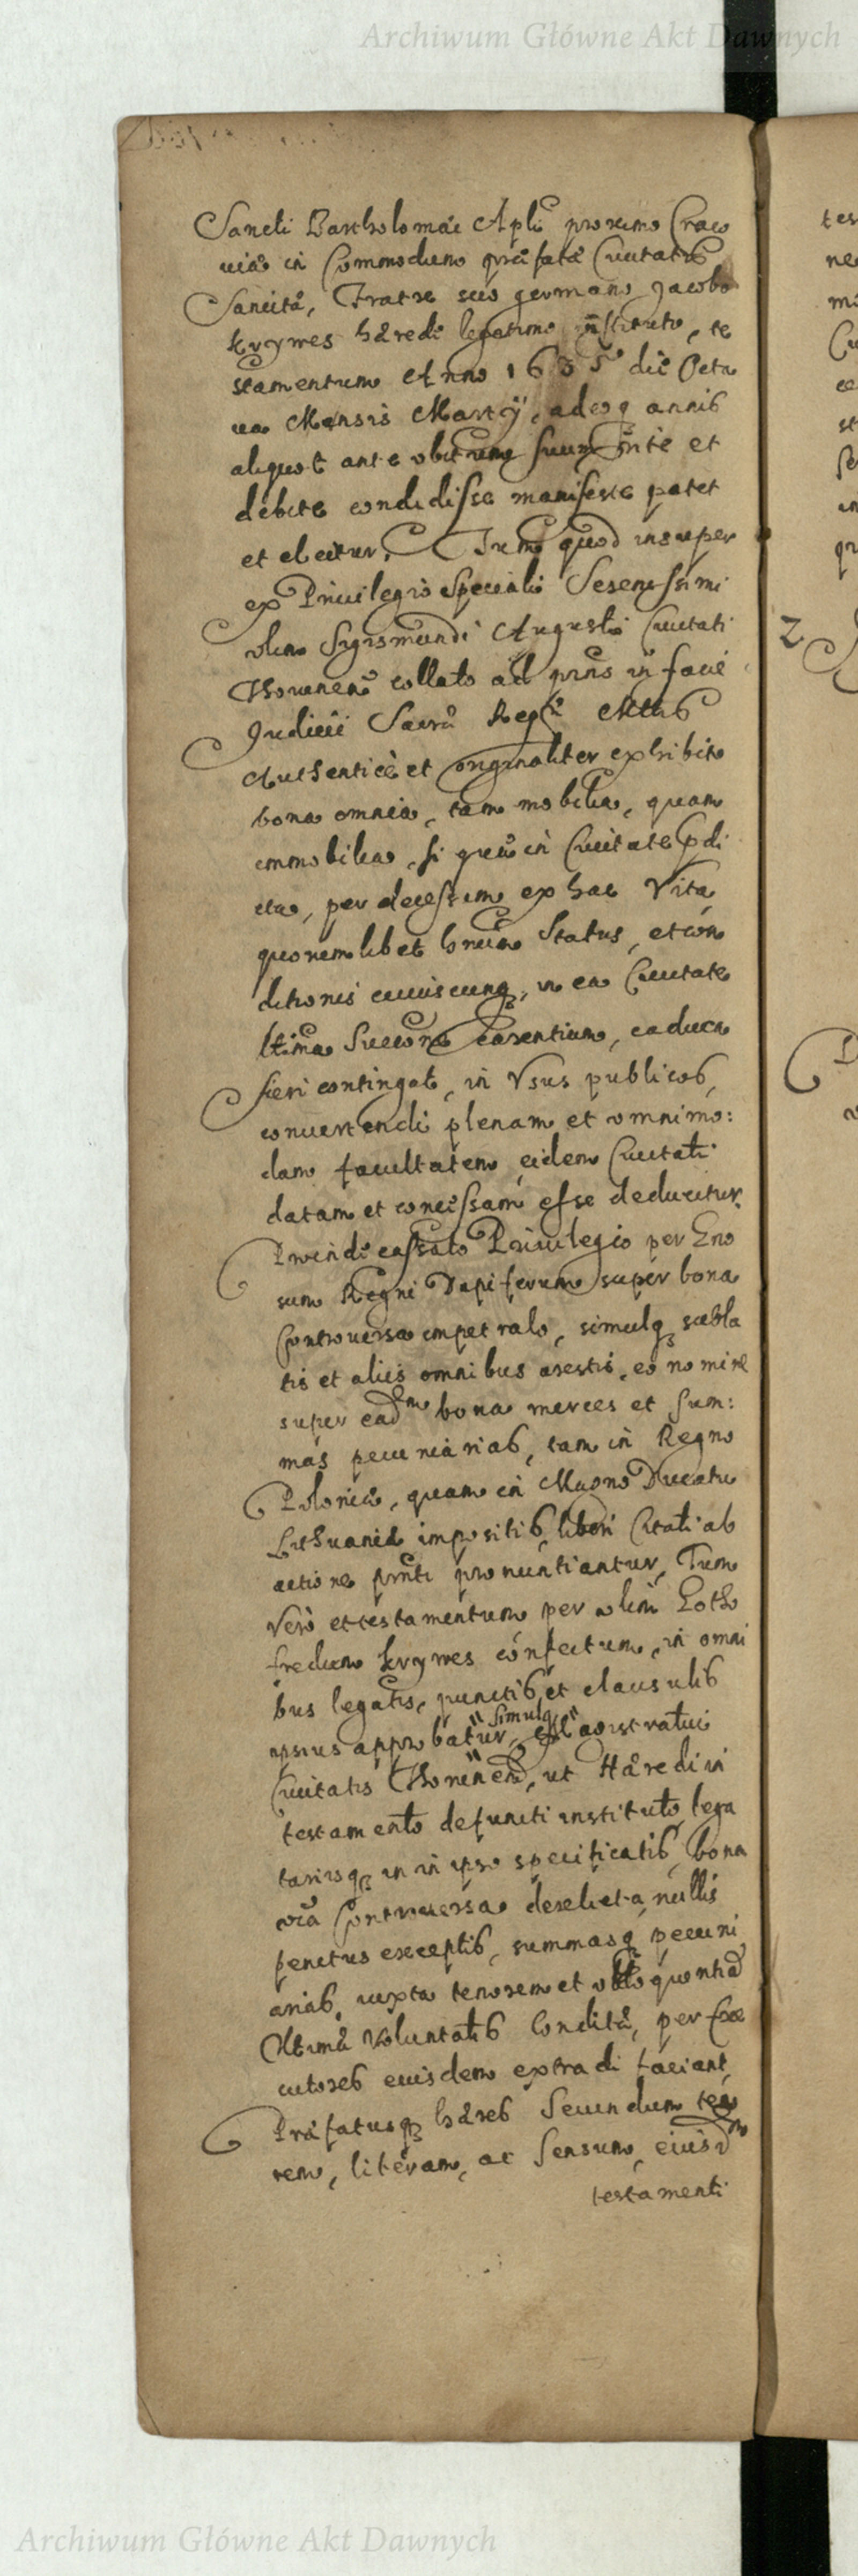 Archiwum Główne Akt Dawnych
Sancti Bartholomæi Apli proximo Craco
uiæ in Commodum præfatæ Ciuitatis
Sancita, Fratre suo germano Jacobo
Krymes hærede legitimo instituto, te
stamentum Anno 1635 die Octa
ua Mensis Martij, adeoq annis
aliquot ante obitum suum rite et
debite condidisse manifeste patet
et elicitur. Tum quod insuper
ex Priuilegio Speciali Serenissimi
olim Sigismundi Augusti Ciuitati
Thorunen collato ad prns in facie
Judicii Sacræ Regiæ Mttis
Authenticè et originaliter exhibito
bona omnia, tam mobilia, quam
immobilia, si quæ in Ciuitate pdi
cta, per decessum ex hac Vita
quorumlibet hominum Status, et con
ditionis cuiuscunq, in ea Ciuitate
ltima Succone carentium, caduca
fieri contingat, in Vsus publicos,
conuertendi plenam et omnimo:
dam facultatem eidem Ciuitati
datam et concessam esse deducitur.
Proinde cassato Priuilegio per Gno
sum Regni Dapiferum super bona
Controuersa impetrato, simulq subla
tis et aliis omnibus arestis, eo nomine
super eadem bona merces et sum:
mas pecuniarias, tam in Regno
Poloniæ, quam in Magno Ducatu
Lithuaniæ impositis, liberi Citati ab
actione prnti pronuntiantur, Tum
Verò et testamentum per olim Gotho
fredum Krymes confectum, in omni
bus legatis, punctis et clausulis
ipsius approbatur, simulq
Ciuitatis Thorunen, ut Hæredi in
testamento defuncti instituto, lega
tariisq in ipso specificatis, bona
oia Controuersa derelicta nullis
penitus exceptis, summasq pecuni
arias, iuxta tenorem et
Vltimæ Voluntatis Conditæ, per Exe
cutores eiusdem extradi faciant,
Præfatusq hæres Secundum teno
rem, literam, ac Sensum, eiusdem
testamenti
2
Archiwum Główne Akt Dawnych